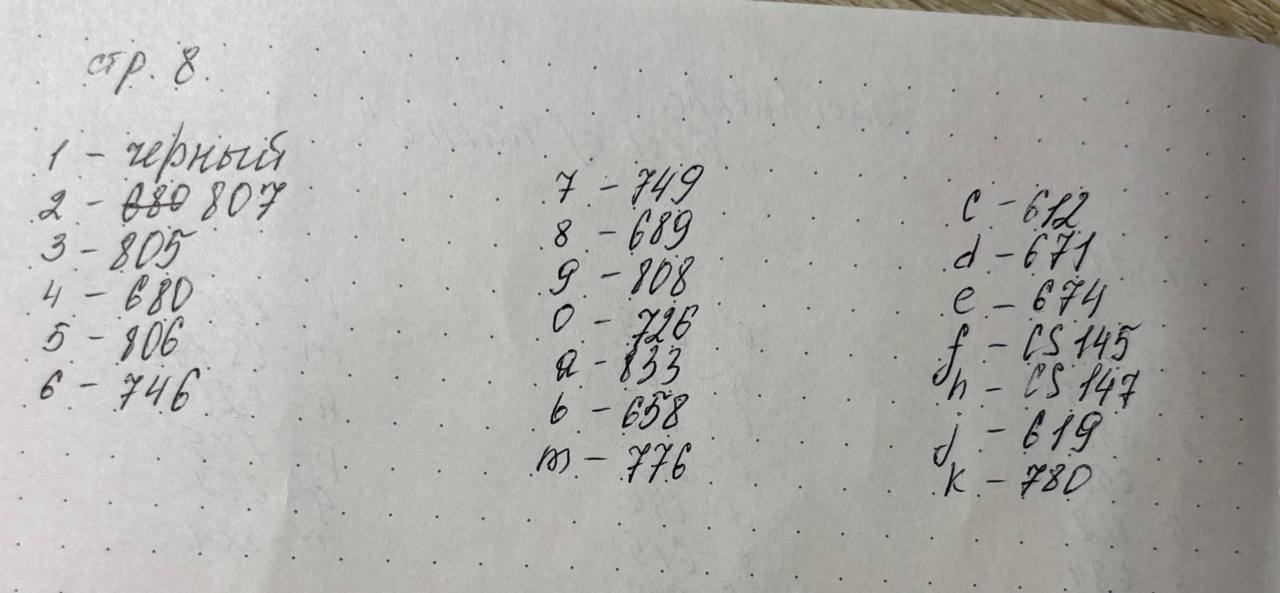 стр. 8.
1 - черный
2 - 680 807
3 - 805
4 - 680
5 - 806
6 - 746
7 - 749
8 - 689
9 - 808
0 - 726
a - 833
b - 658
m - 776
c - 612
d - 671
e - 674
f - CS 145
h - CS 147
j - 619
k - 780